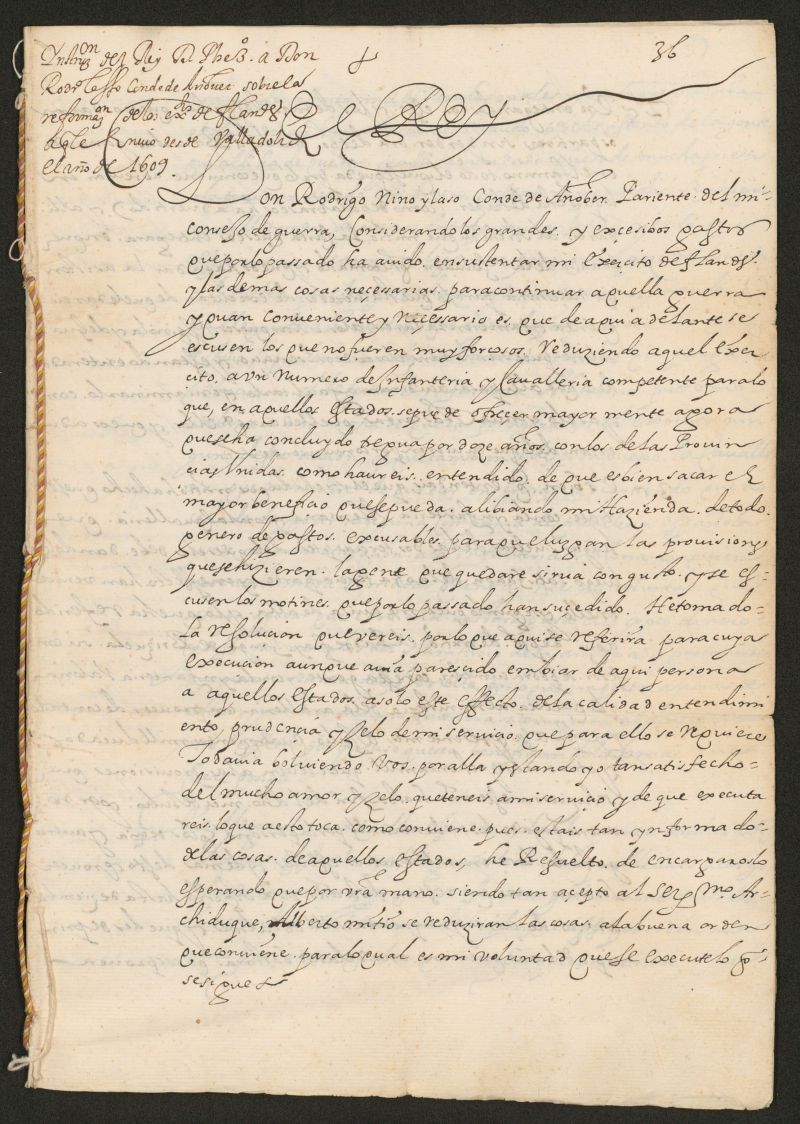 Ynstruon del Rey D. Phe3o. a Don
Rodo. Lasso Conde de Añover sobre la
reformaon de los exos. de flandes
a qle. Envio desde Valladolid
el año de 1609.
36
El Rey
Don Rodrigo Nino y laso Conde de Añober Pariente del mi
consejo de guerra, Considerando los grandes. y excesibos gastos
que por lo passado ha avido. en sustentar mi Exército de flandes.
y las demas cosas neçessarias. para continuar aquella guerra
y quan conveniente y neçessario es. que de aqui adelante se
escusen los que no fueren muy forçosos. Reduziendo aquel exer
cito. a un numero de Infanteria y Cavalleria competente para lo
que, en aquellos estados. se puede ofreçer mayormente agora
que se ha concluydo tregua por doze años. con los de las Provin
cias Unidas. como havreis. entendido. de que es bien sacar el
mayor benefiçio que se pueda. alibiando mi Hazienda. de todo.
genero de gastos. excusables. para que luzgan las provisiones
que se hizieren. la gente que quedare sirva con gusto. y se es-
cusen los motines. que por lo passado han suçedido. He tomado-
la resoluçion que vereis. por lo que aqui se referira para cuya
execuçion aunque avia paresçido embiar de aqui persona
a aquellos estados. a solo este effecto. de la calidad entendimi
ento, prudençia y zelo de mi serviçio. que para ello se requiere
Todavia bolviendo. vos. por alla y estando yo tan satisfecho-
del mucho amor. y zelo. que teneis. a mi serviçio y de que executa
reis. lo que a esto toca. como conviene. pues. estais tan ynformado-
de las cosas. de aquellos estados, he Resuelto. de encargaroslo
esperando que por vra mano. siendo tan açepto al sermo. Ar-
chiduque, Alberto mi tio se reduziran las cosas. a la buena orden
que conviene. para lo qual es mi voluntad que se execute lo q-
se sigue